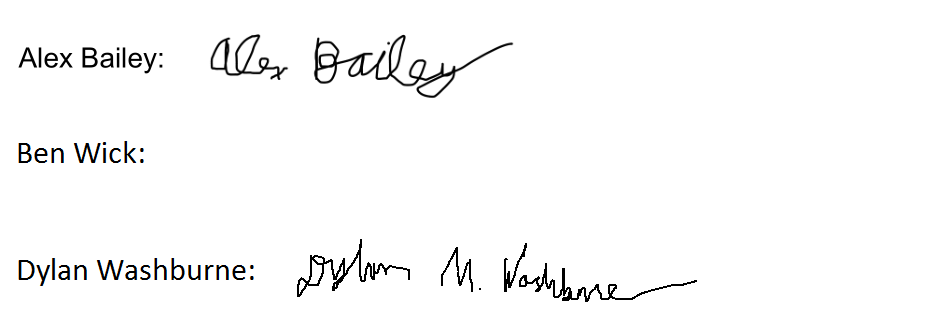 Alex Bailey: Alex Bailey
Ben Wick:
Dylan Washburne: Dylan M. Washburne